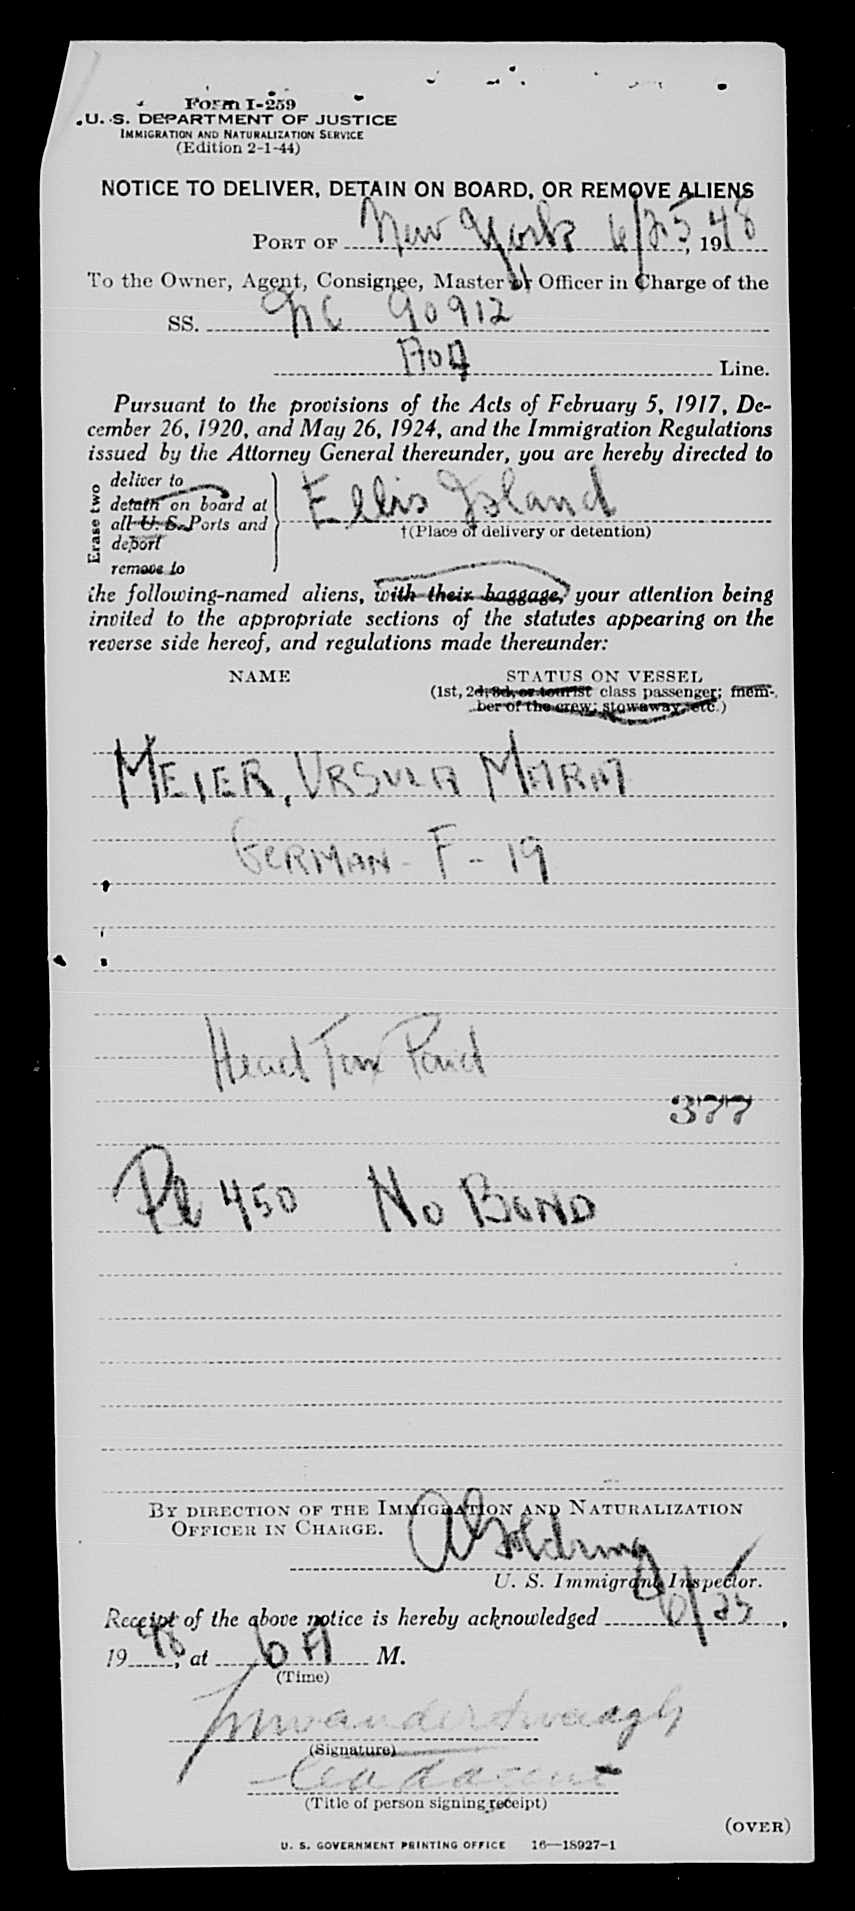 Form I-259
U. S. DEPARTMENT OF JUSTICE
IMMIGRATION AND NATURALIZATION SERVICE
(Edition 2-1-44)
NOTICE TO DELIVER, DETAIN ON BOARD, OR REMOVE ALIENS
PORT OF New York 6/25, 1948
To the Owner, Agent, Consignee, Master or Officer in Charge of the
SS. NC 90912
AOA Line.
Pursuant to the provisions of the Acts of February 5, 1917, De-
cember 26, 1920, and May 26, 1924, and the Immigration Regulations
issued by the Attorney General thereunder, you are hereby directed to
Erase two
deliver to
detain on board at
all U. S. Ports and
deport
remove to
Ellis Island
†(Place of delivery or detention)
the following-named aliens, with their baggage, your attention being
invited to the appropriate sections of the statutes appearing on the
reverse side hereof, and regulations made thereunder:
NAME STATUS ON VESSEL
(1st, 2d, 3d, or tourist class passenger; mem-
ber of the crew; stowaway, etc.)
MEIER, URSULA MARIA
GERMAN - F - 19
Head Tax Paid
377
PL 450 NO BOND
BY DIRECTION OF THE IMMIGRATION AND NATURALIZATION
OFFICER IN CHARGE.
A Goldring
U. S. Immigrant Inspector.
Receipt of the above notice is hereby acknowledged 6/25,
1948, at 6 A M.
(Time)
(Signature)
(Title of person signing receipt)
(OVER)
U. S. GOVERNMENT PRINTING OFFICE 16—18927-1